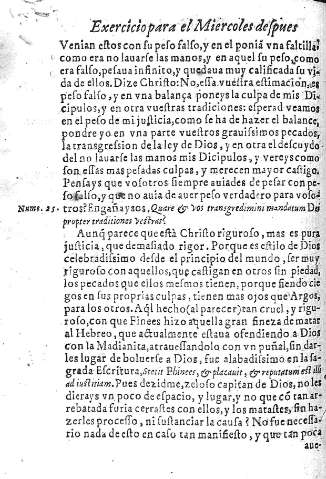 Exercicio para el Miercoles despues
Venian estos con su peso falso, y en el poniã vna faltilla,
como era no lauarse las manos, y en aquel su peso, como
era falso, pesaua infinito, y quedaua muy calificada su vi-
da de ellos. Dize Christo: No, essa vuestra estimacion, es
peso falso, y en vna balança poneys la culpa de mis Di-
cipulos, y en otra vuestras tradiciones: esperad veamos
en el peso de mi justicia, como se ha de hazer el balance,
pondre yo en vna parte vuestros grauissimos pecados,
la transgression de la ley de Dios, y en otra el descuydo
del no lauarse las manos mis Dicipulos, y vereys como
son essas mas pesadas culpas, y merecen mayor castigo.
Pensays que vosotros siempre auiades de pesar con pe-
so falso, y que no auia de auer peso verdadero para voso-
Nums. 25. tros? Engañaysos, Quare & vos transgredimini mandatum Dei
propter traditiones vestras?
Aunq̃ parece que està Christo riguroso, mas es pura
justicia, que demasiado rigor. Porque es estilo de Dios
celebradissimo desde el principio del mundo, ser muy
riguroso con aquellos, que castigan en otros sin piedad,
los pecados que ellos mesmos tienen, porque siendo cie-
gos en sus propias culpas, tienen mas ojos que Argos,
para los otros. Aq̃l hecho (al parecer) tan cruel, y rigu-
roso, con que Finees hizo aquella gran fineza de matar
al Hebreo, que actualmente estaua ofendiendo a Dios
con la Madianita, atrauessandolo con vn puñal, sin dar-
les lugar de boluerse a Dios, fue alabadissimo en la sa-
grada Escritura, stetit Phinees, & placauit, & reputatum est illi
ad iustitiam. Pues dezidme, zeloso capitan de Dios, no les
dierays vn poco de espacio, y lugar, y no que cõ tan ar-
rebatada furia cerrastes con ellos, y los matastes, sin ha-
zerles processo, ni sustanciar la causa? No fue necessa-
rio nada de esto en caso tan manifiesto, y que tan poca
aue-